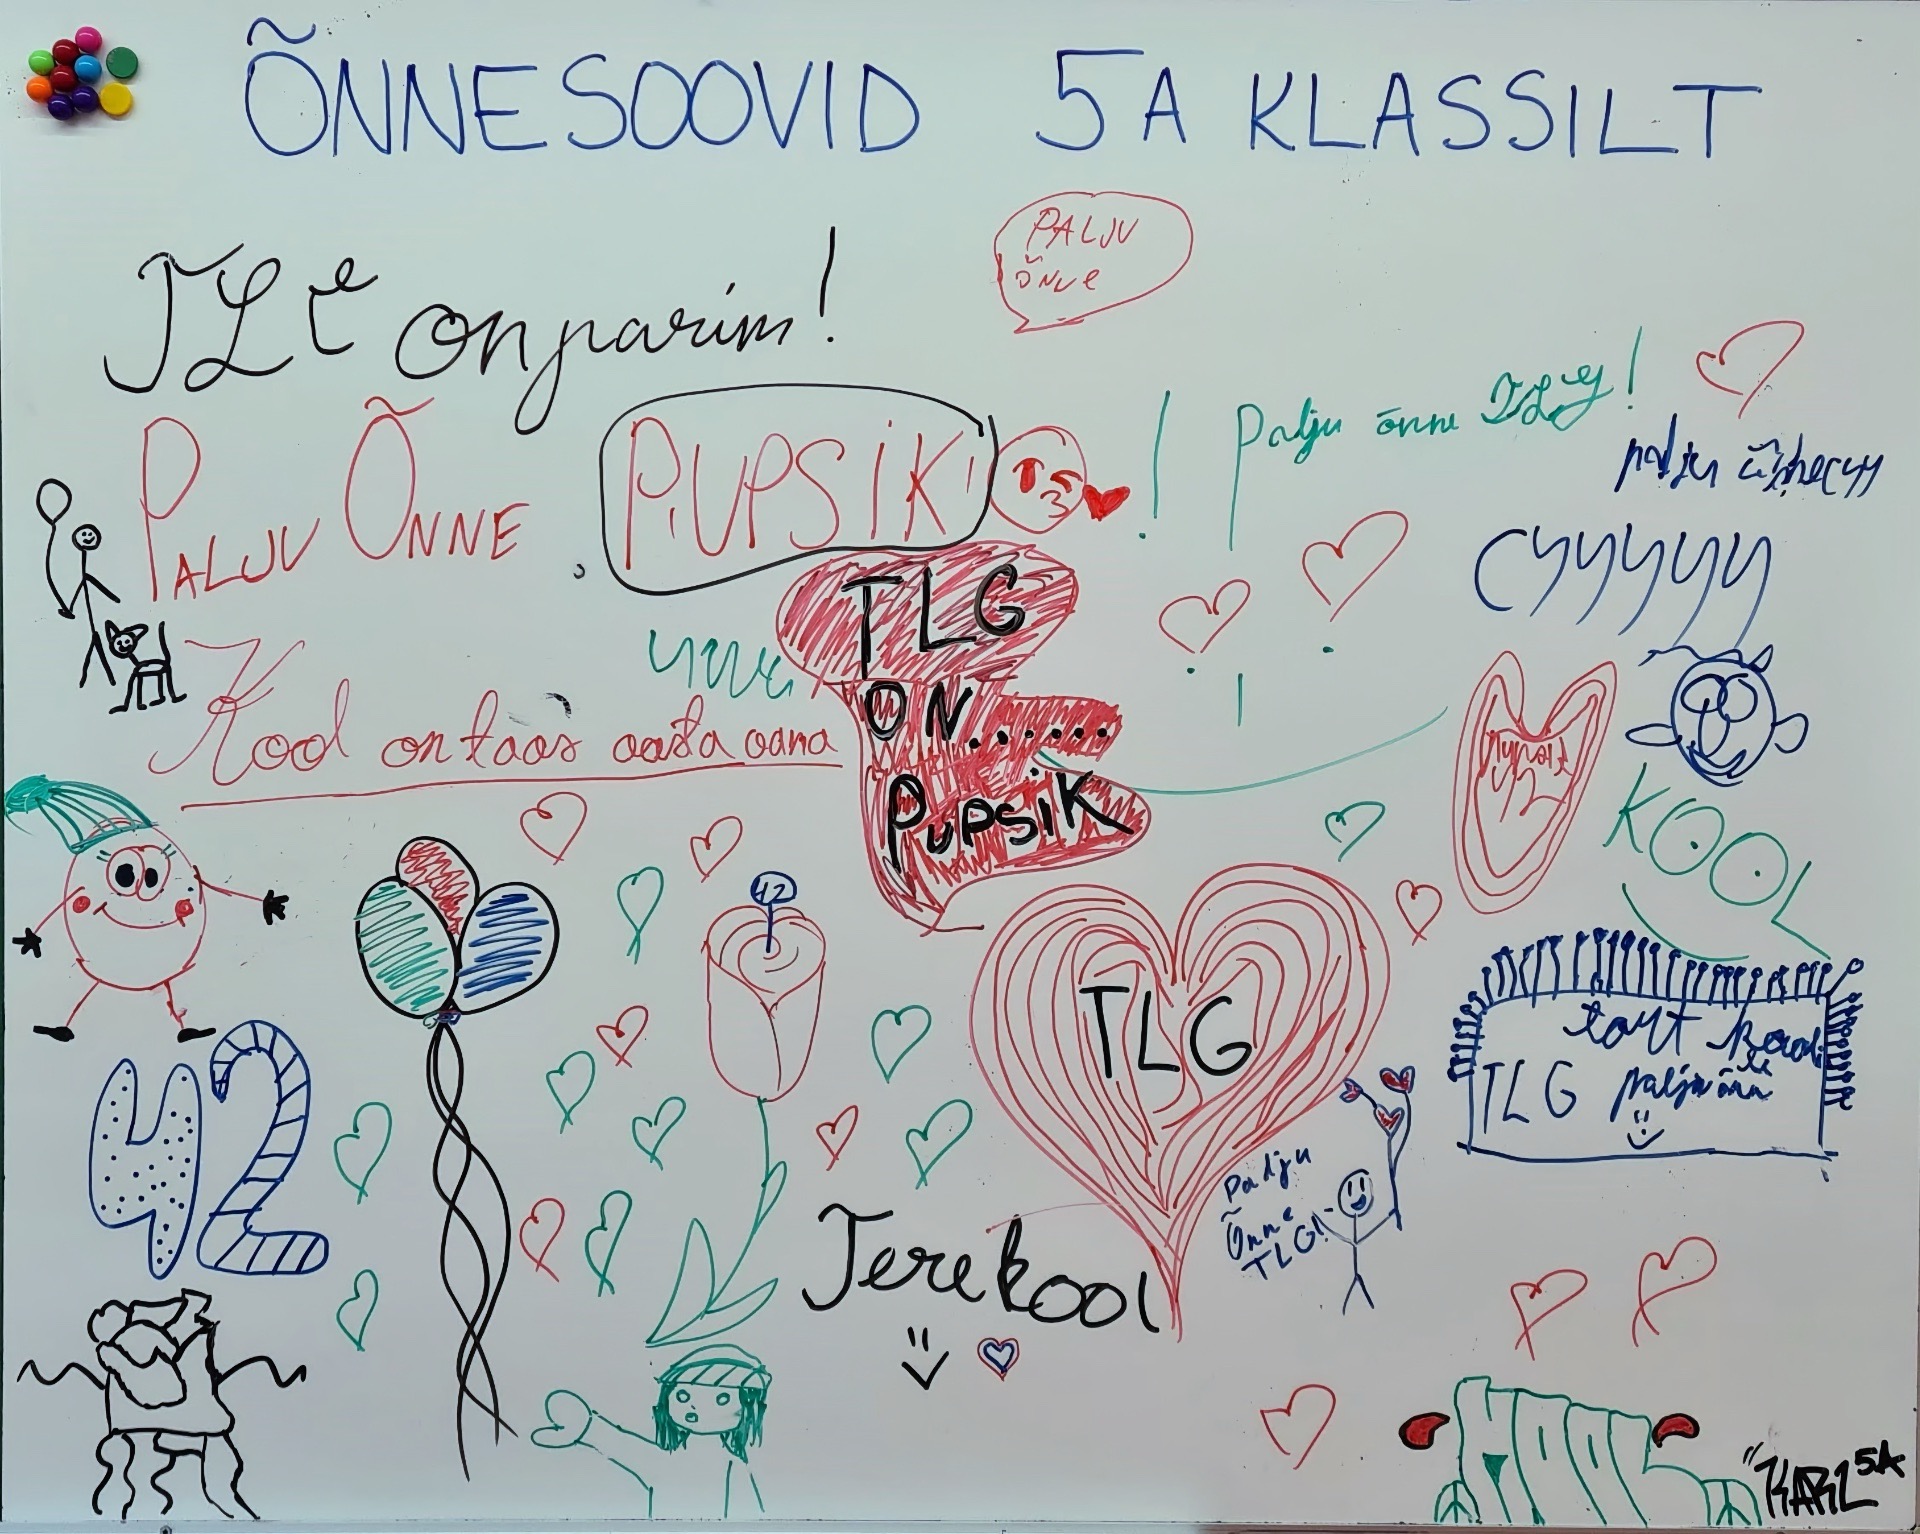 ÕNNESOOVID 5A KLASSILT
TLG on parim!
PALJU
ÕNNE
PALJU ÕNNE PUPSIK!
Palju õnne TLG!
palju
TLG
ON......
PUPSIK
Kool on taas aasta vana
KOOL
42
TLG
tort
TLG palju õnne
42
Palju
Õnne
TLG!
Tere kool
KOOL
"KARL 5A